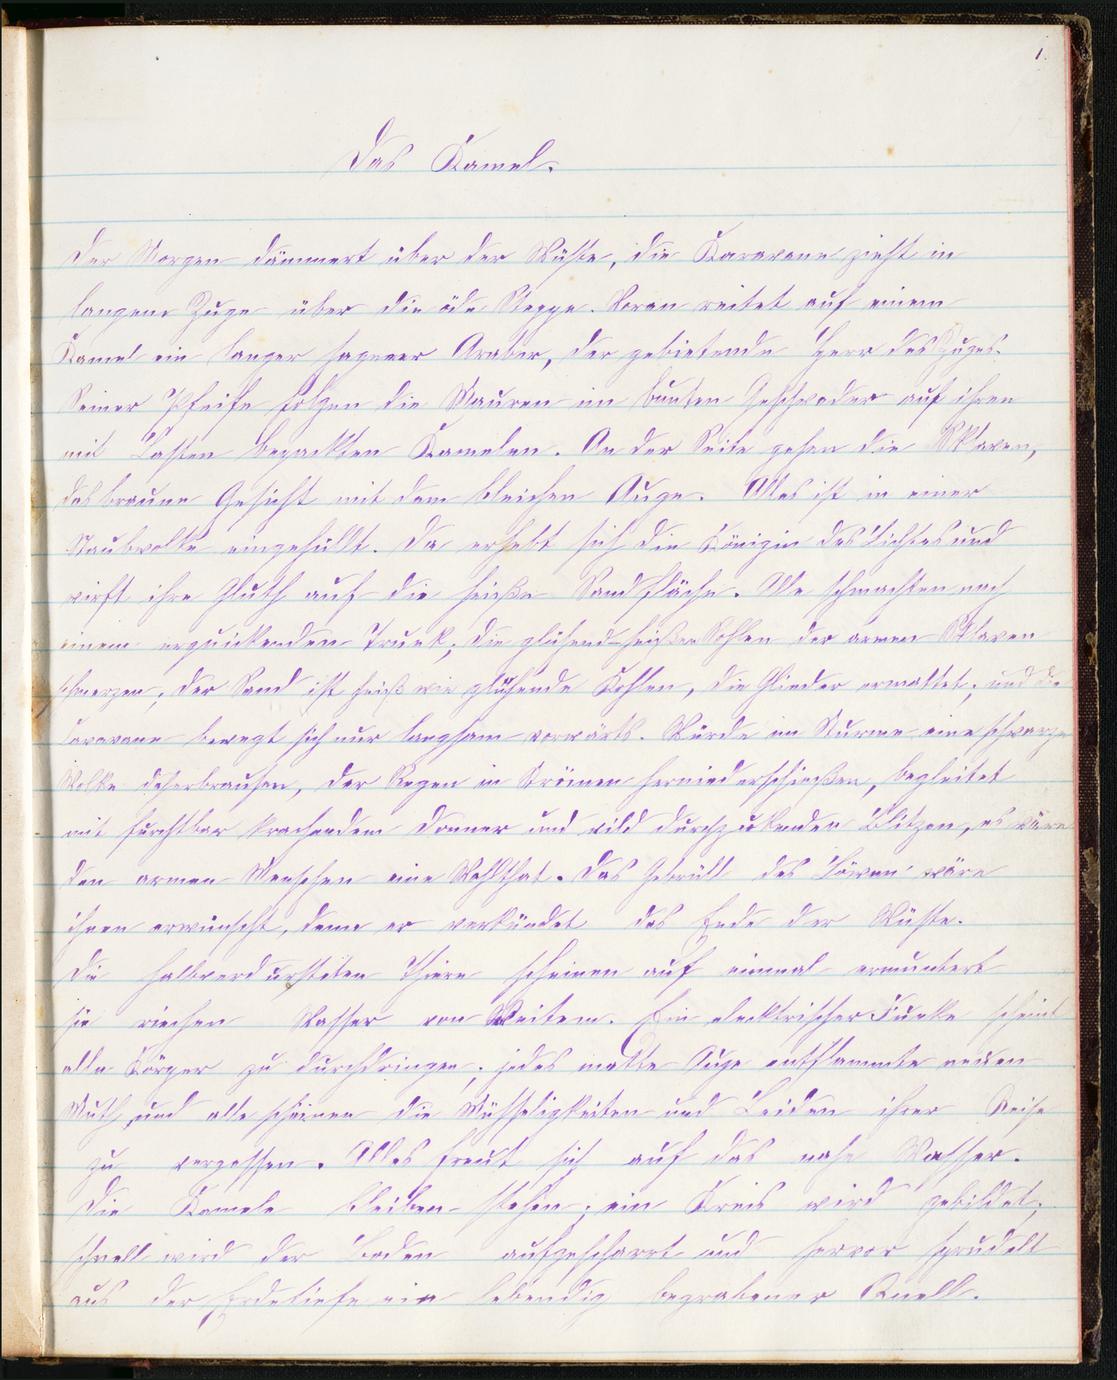 1.
Das Kamel.
Der Morgen dämmert über der Wüste, die Karavane zieht in
langem Zuge über die öde Steppe. Voran reitet auf einem
Kamel ein langer hagerer Araber, der gebietende Herr des Zuges.
Seiner Pfeife folgen die Mauren im bunten Geschwader auf ihren
mit Lasten bepackten Kamelen. An der Seite gehen die Sklaven,
das braune Gesicht mit dem bleichen Auge. Alles ist in einer
Staubwolke eingehüllt. Da erhebt sich die Königin des Lichtes und
wirft ihre Gluth auf die heiße Sandfläche. Alle schmachten nach
einem erquickenden Trunk; die glühend-heißen Sohlen der armen Sklaven
schmerzen; der Sand ist heiß wie glühende Kohlen, die Glieder ermattet; und die
Caravane bewegt sich nur langsam vorwärts. Würde im Sturme eine schwarze
Wolke daherbrausen, der Regen in Strömen herniederschießen, begleitet
mit furchtbar krachendem Donner und wild durchzukenden Blitzen, es wäre
den armen Menschen eine Wohlthat. Das Gebrüll des Löwen wäre
ihnen erwünscht, denn er verkündet das Ende der Wüste.
Die halbverdursteten Thiere scheinen auf einmal ermuntert
sie riechen Wasser von Weitem. Ein elecktrischer Funke scheint
alle Körper zu durchdringen; jedes matte Auge entflammte neuen
Muth, und alle scheinen die Mühseligkeiten und Leiden ihrer Reise
zu vergessen. Alles freut sich auf das nahe Wasser.
Die Kamele bleiben stehen; ein Kreis wird gebildet;
schnell wird der Boden aufgescharrt und hervor sprudelt
aus der Erdetiefe ein lebendig begrabener Quell.